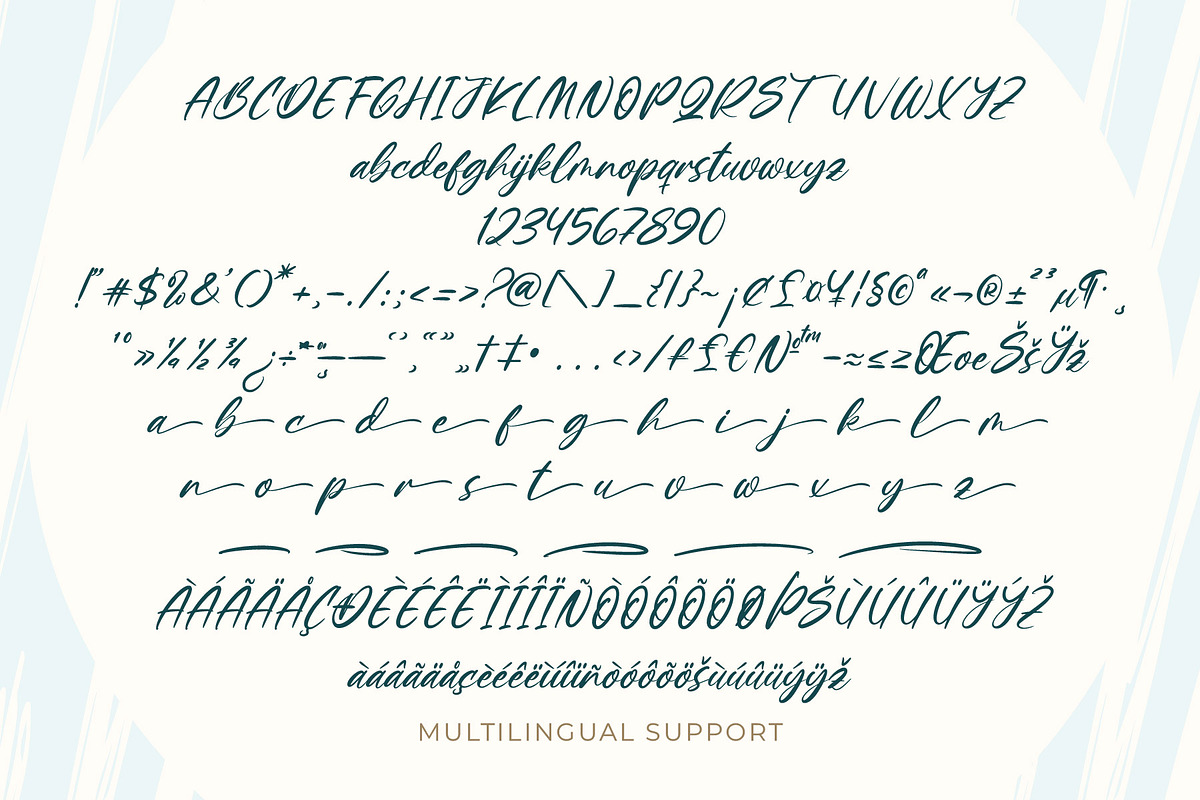 ABCDEFGHIJKLMNOPQRSTUVWXYZ
abcdefghijklmnopqrstuvwxyz
1234567890
!"#$%&'()*+,-./:;<=>?@[\]_{|}~¡¢£¤¥¦§©ª«¬®±²³µ¶·¸
¹º»¼½¾¿÷ˆ˜¨¸–—‘’‚“”„†‡•…‹›/ƒ£€№™−≈≤≥ŒœŠšŸž
a b c d e f g h i j k l m
n o p r s t u v w x y z
ÀÁÂÃÄÅÇÐÈÉÊËÌÍÎÏÑÒÓÔÕÖØÞŠÙÚÛÜŸÝŽ
àáâãäåçèéêëìíîïñòóôõöšùúûüýÿž
MULTILINGUAL SUPPORT